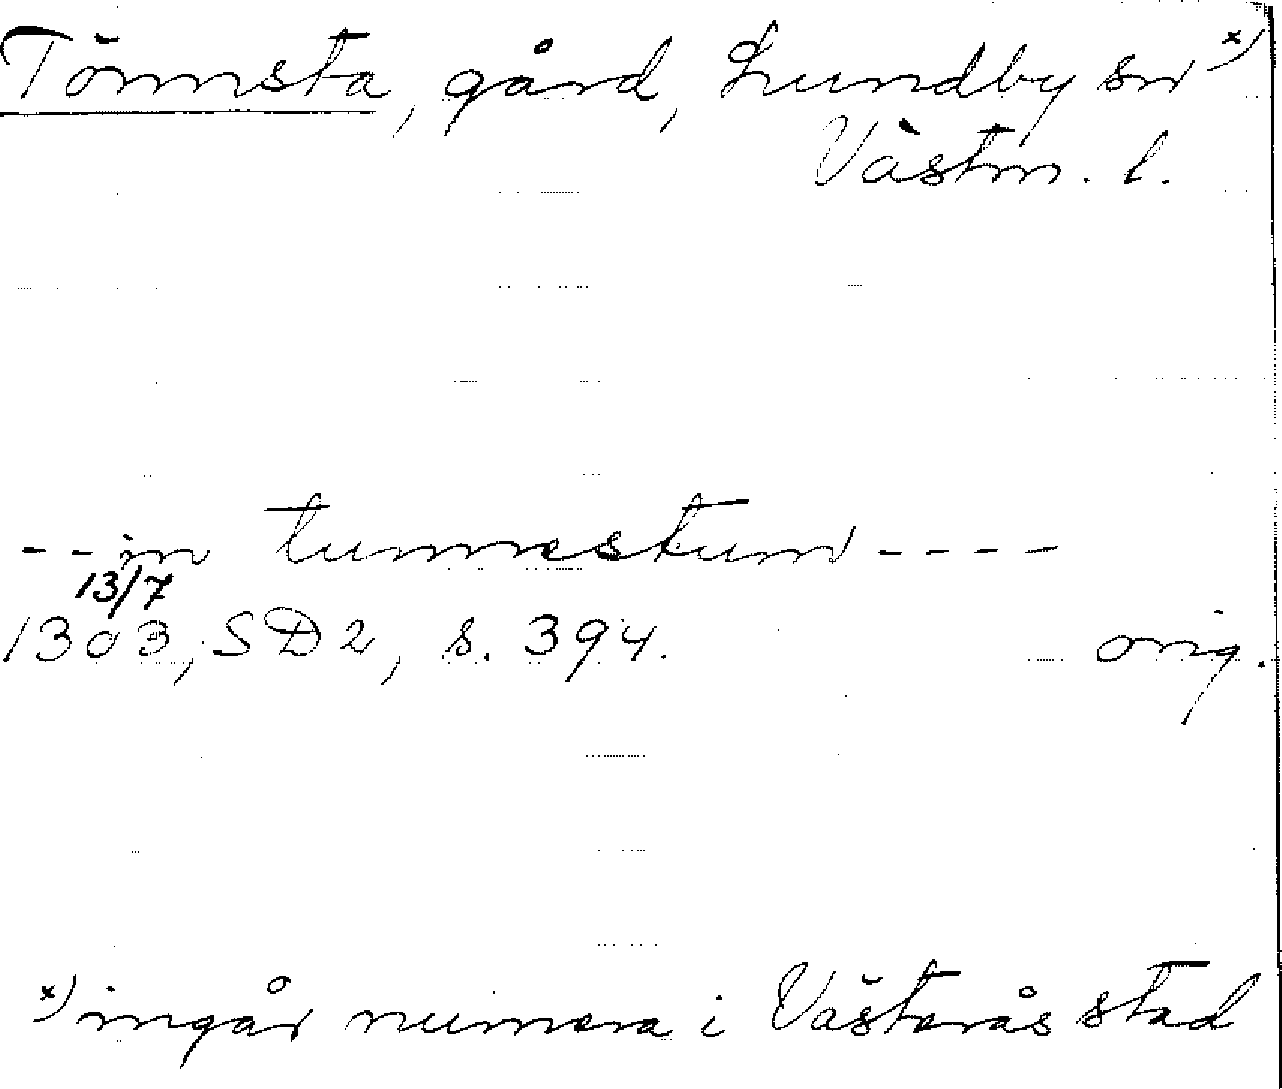 Tönnsta, gård, Lundby sn x)
Västm. l.
- - in tunnestum - - - -
13/7
1303, SD 2, s. 394. orig.
x) ingår numera i Västerås stad